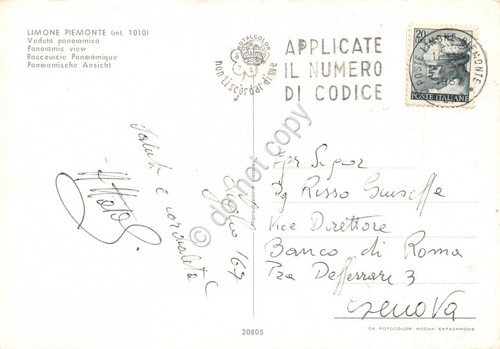 LIMONE PIEMONTE (mt. 1010)
Veduta panoramica
Panoramic view
Raccourcie Panoramique
Panoramische Ansicht
POSTALCOLOR
non ti scordar di me
APPLICATE
IL NUMERO
DI CODICE
20
POSTE ITALIANE
POSTE LIMONE PIEMONTE
Saluti e cordialità
Luglio '67
Egr Signor
Rag Risso Giuseffe
Vice Direttore
Banco di Roma
Pza Defferrari 3
Genova
do not copy
20805
DA FOTOCOLOR KODAK EKTACHROME